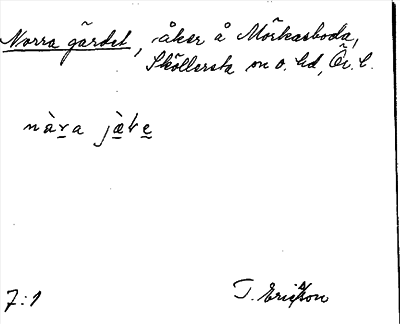 Norra gärdet, åker å Mörkaboda,
Sköllersta sn o. hd, Ör. l.
nàra jæ̀te
7:1
T. Ericsson